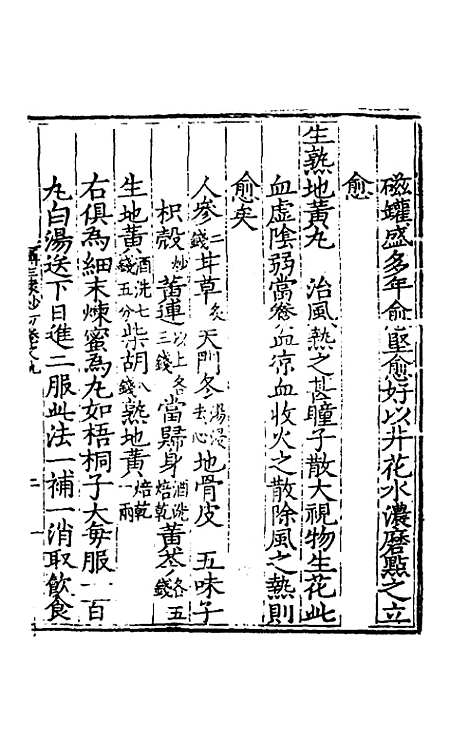 磁罐盛多年愈堅愈好以井花水濃磨點之立
愈
生熟地黃丸　治風熱之甚瞳子散大視物生花此
血虛陰弱當養血凉血收火之散除風之熱則
愈矣
人參二錢甘草炙天門冬湯浸去心地骨皮　五味子
枳殼炒黃連以上各三錢當歸身酒洗焙乾黃芩各五錢
生地黃酒洗七錢五分柴胡八錢熟地黃焙乾一兩
右俱為細末煉蜜為丸如梧桐子大每服一百
丸白湯送下日進二服此法一補一消取飲食